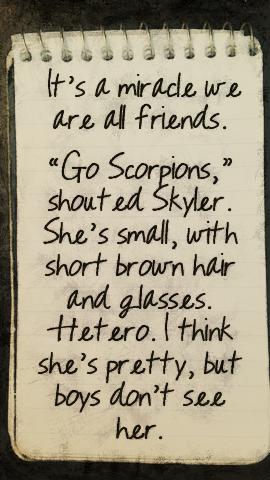 It's a miracle we
are all friends.
"Go Scorpions,"
shouted Skyler.
She's small, with
short brown hair
and glasses.
Hetero. I think
she's pretty, but
boys don't see
her.